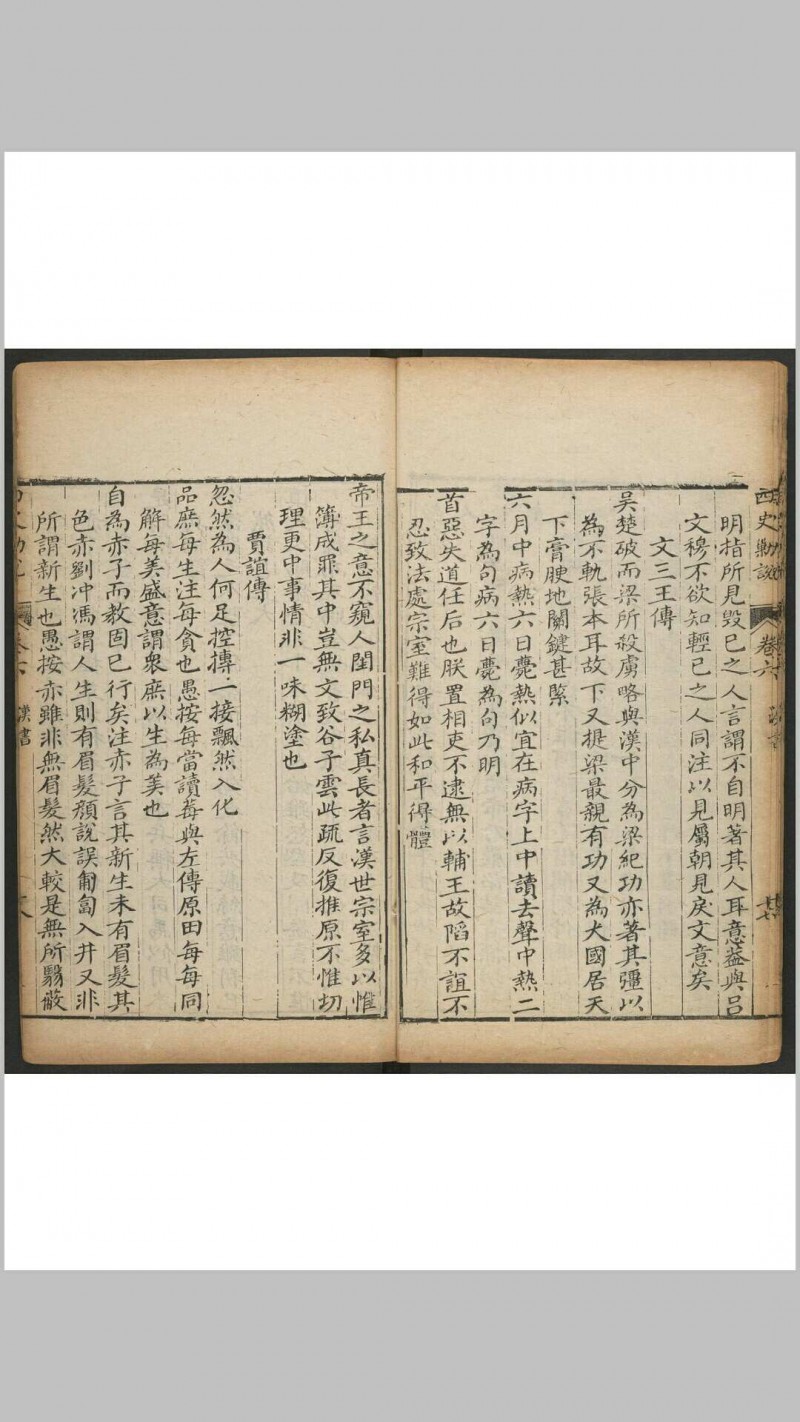 四史勦說 卷六 漢書 廿七
明指所見毀已之人言謂不自明著其人耳意葢與呂
文穆不欲知輕已之人同注以見屬朝見戾文意矣
文三王傳
吳楚破而梁所殺虜略與漢中分為梁紀功亦著其彊以
為不軌張本耳故下又提梁最親有功又為大國居天
下膏腴地關鍵甚緊
六月中病熱六日薨熱似宜在病字上中讀去聲中熱二
字為句病六日薨為句乃明
首惡失道任后也朕置相吏不逮無以輔王故陷不誼不
忍致法處宗室難得如此和平得體
帝王之意不窺人閨門之私真長者言漢世宗室多以惟
簿成罪其中豈無文致谷子雲此疏反復推原不惟切
理更中事情非一味糊塗也
賈誼傳
忽然為人何足控摶二接飄然入化
品庶每生注每貪也愚按每當讀莓與左傳原田每每同
解每美盛意謂衆庶以生為美也
自為赤子而教固已行矣注赤子言其新生未有眉髮其
色赤劉冲馮謂人生則有眉髮顏說誤匍匐入井又非
所謂新生也愚按亦雖非無眉髮然大較是無所翳蔽